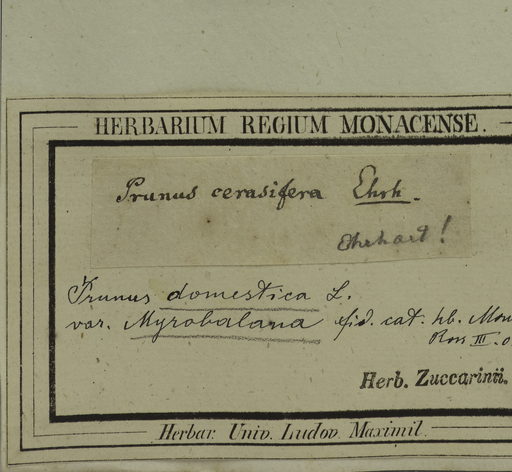 HERBARIUM REGIUM MONACENSE.
Prunus cerasifera Ehrh.
Ehrhart!
Prunus domestica L.
var. Myrobalana fid. cat. hb. Mon
III.
Herb. Zuccarinii.
Herbar. Univ. Ludov. Maximil.